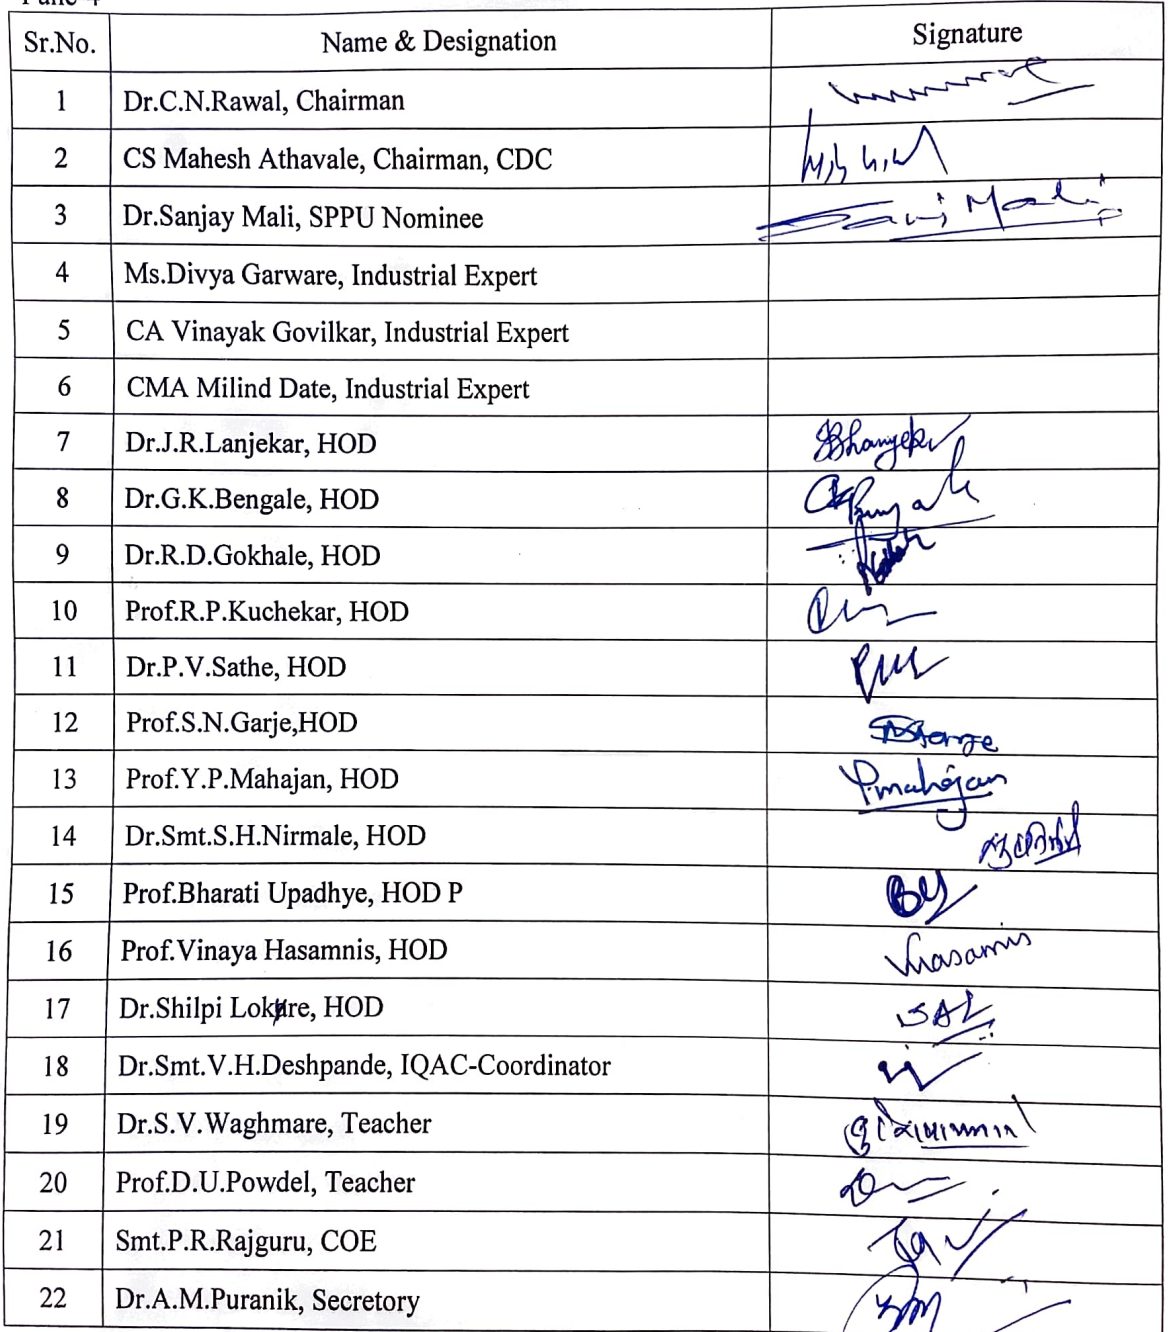 Sr.No. Name & Designation Signature
1 Dr.C.N.Rawal, Chairman
2 CS Mahesh Athavale, Chairman, CDC
3 Dr.Sanjay Mali, SPPU Nominee Mali
4 Ms.Divya Garware, Industrial Expert
5 CA Vinayak Govilkar, Industrial Expert
6 CMA Milind Date, Industrial Expert
7 Dr.J.R.Lanjekar, HOD
8 Dr.G.K.Bengale, HOD
9 Dr.R.D.Gokhale, HOD
10 Prof.R.P.Kuchekar, HOD
11 Dr.P.V.Sathe, HOD
12 Prof.S.N.Garje,HOD
13 Prof.Y.P.Mahajan, HOD Ymahajan
14 Dr.Smt.S.H.Nirmale, HOD
15 Prof.Bharati Upadhye, HOD P
16 Prof.Vinaya Hasamnis, HOD Vhasamnis
17 Dr.Shilpi Lokre, HOD
18 Dr.Smt.V.H.Deshpande, IQAC-Coordinator
19 Dr.S.V.Waghmare, Teacher
20 Prof.D.U.Powdel, Teacher
21 Smt.P.R.Rajguru, COE
22 Dr.A.M.Puranik, Secretory